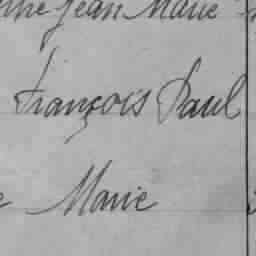 Jean Marie
François Paul
Marie